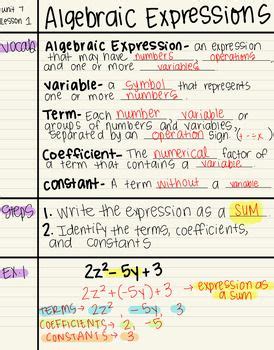 unit 7
Lesson 1
Algebraic Expressions
vocab
Algebraic Expression- an expression
that may have numbers, operations,
and one or more variables.
variable- a symbol that represents
one or more numbers.
Term- Each number, variable or
groups of numbers and variables,
separated by an operation sign. (+ - ÷ ×)
Coefficient- The numerical factor of
a term that contains a variable.
constant- A term without a variable.
Steps
1. Write the expression as a SUM.
2. Identify the terms, coefficients,
and constants
Ex
2z² - 5y + 3
2z² + (-5y) + 3 → expression as
a sum
TERMS → 2z², -5y, 3
COEFFICIENTS → 2, -5
CONSTANTS → 3